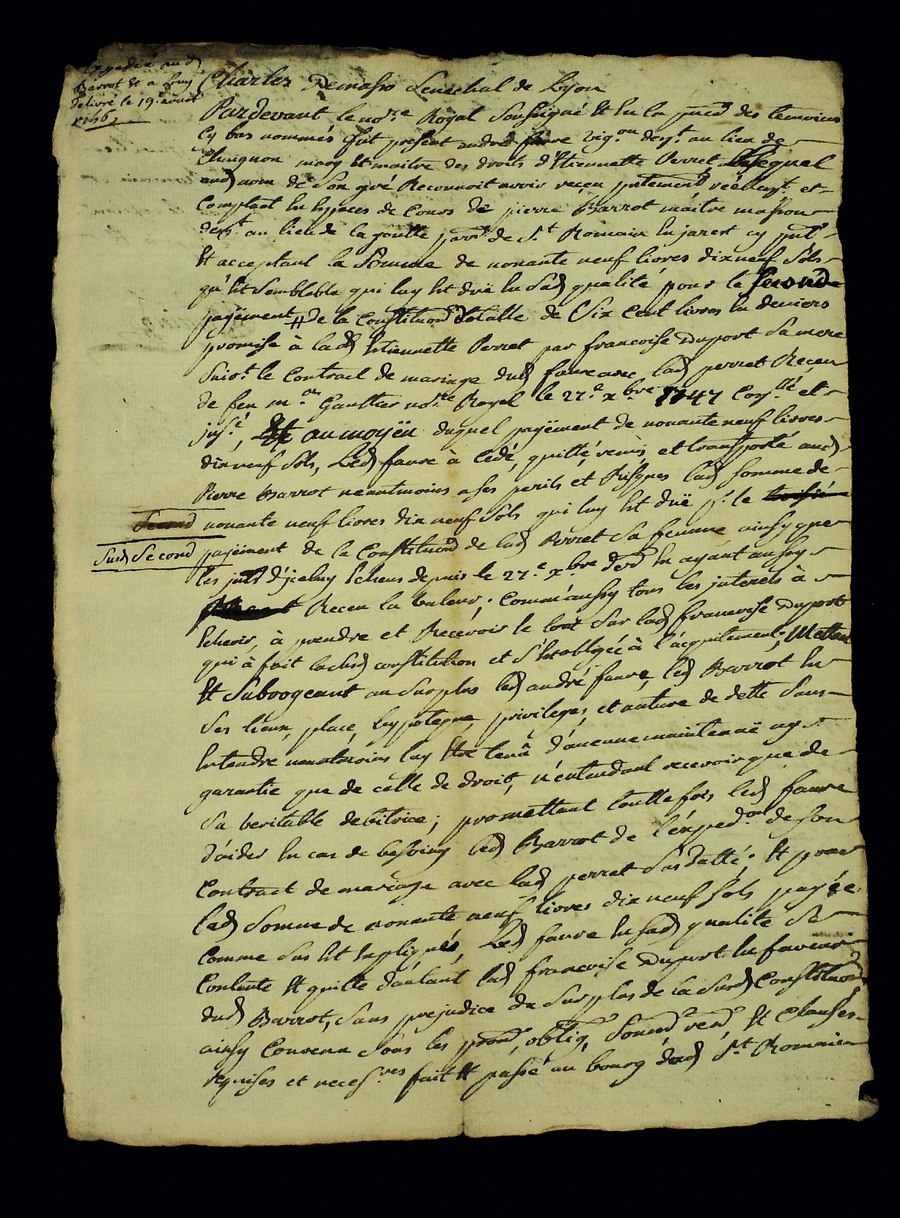 Expedié aud
Barrot et a luy
delivré le 19e aoust
1756
Charles Demasso Senechal de Lyon
Pardevant le no.re Royal Soussigné Et En la pnce des temoins
Cy bas nommés fut present andré faure vig.on dem.t au lieu de
Chungnon mary et maitre des droits d'Etiennette Perret Lesequel
aud nom de Son gré Reconnoit avoir reçeu putement réellem.t et
Comptant En Especes de Cours de pierre Barrot maitre masson
dem.t au lieu de la goutte parr.e de S.t Romain En jarest cy pnt
Et acceptant la Somme de nonante neuf livres dix neuf Sols
qu'Et Semblable qui luy Est düe En Sad qualité pour le Second
payement de la Constitution totalle de Six Cent livres En deniers
promise à lad Etiennette Perret par francoise Duport Sa mere
Suiv.t le Contract de mariage dud faure avec lad perret Reçeu
de feu m.re Gaultier no.re Royal le 27.e x.bre 1747 Con.llé et
ins.é, au moyën duquel payëment de nonante neuf livres
dix neuf Sols, Led faure à Cedé, quitté, remis et transporté aud
Pierre Barrot neantmoins a Ses perils et Risques lad Somme de
Second
nonante neuf livres dix neuf Sols qui luy Est düe p.r le troisié
Susd Second
payëment de la Constitution de lad Perret Sa femme ainsy que
les jnts d'jceluy Echeus depuis le 27.e x.bre dern En ayant aussy
Receu la Valeur; Comm'aussy tous les jnterets à
Echeoir, à prendre et Recevoir le tout Sur lad francoise Duport
qui à fait lasusd constitution et S'Est obligée à l'acquitement; Mettant
Et Subrogeant au Surplus led andré faure, led Barrot En
Ses lieux, place, hypoteque, privileges, et nature de dette Sans
Entendre neantmoins luy Etre tenû d'aucune maintenüe ny
garantie que de celle de droit, n'entendant recevoir que de
Sa veritable debitrice; promettant touttefois led faure
d'aider En cas de besoing led Barrot de l'expéd.on de Son
Contract de mariage avec lad perret Susdatté; Et pour
lad Somme de nonante neuf livres dix neuf Sols payée
Comme Sus Est Expliqué, Led faure En Sad qualité Se
Contente Et quitte d'autant lad francoise Duport En faveur
dud Barrot, Sans prejudice du Surplus de la Susd Constitution
ainsy Convenu Sous les prom, oblig, Soumd, ren, Et Clauses
requises et neces.res fait Et passé au bourg dud S.t Romain